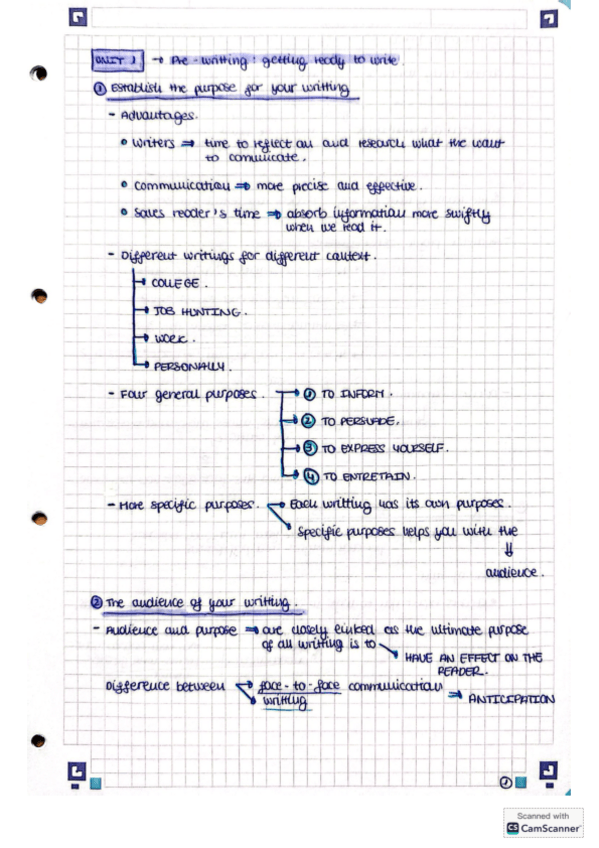 UNIT 1 → Pre-writting: getting ready to write.
① Establish the purpose for your writting
- Advantages.
• Writers ⇒ time to reflect on and research what the want
to comunicate.
• Communication ⇒ more precise and effective.
• Saves reader's time ⇒ absorb information more swiftly
when we read it.
- Different writings for different context.
→ COLLEGE.
→ JOB HUNTING.
→ WORK.
→ PERSONALLY.
- Four general purposes. → ① TO INFORM.
→ ② TO PERSUADE.
→ ③ TO EXPRESS YOURSELF.
→ ④ TO ENTRETAIN.
- More specific purposes. → Each writting has its own purposes.
Specific purposes helps you with the
⇓
audience.
② The audience of your writting.
- Audience and purpose ⇒ are closely linked as the ultimate purpose
of all writting is to → HAVE AN EFFECT ON THE
READER.
Difference between → face-to-face communication
→ writting ⇒ ANTICIPATION
①
Scanned with
CS CamScanner